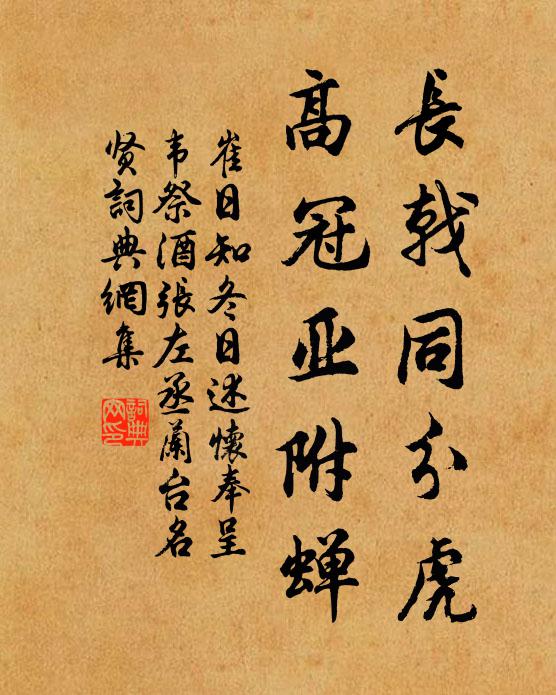 長戟同分虎
高冠亚附蝉
崔日知冬日述懷奉呈
韦祭酒張左丞蘭台名
贤詞典網集
詞典
网印